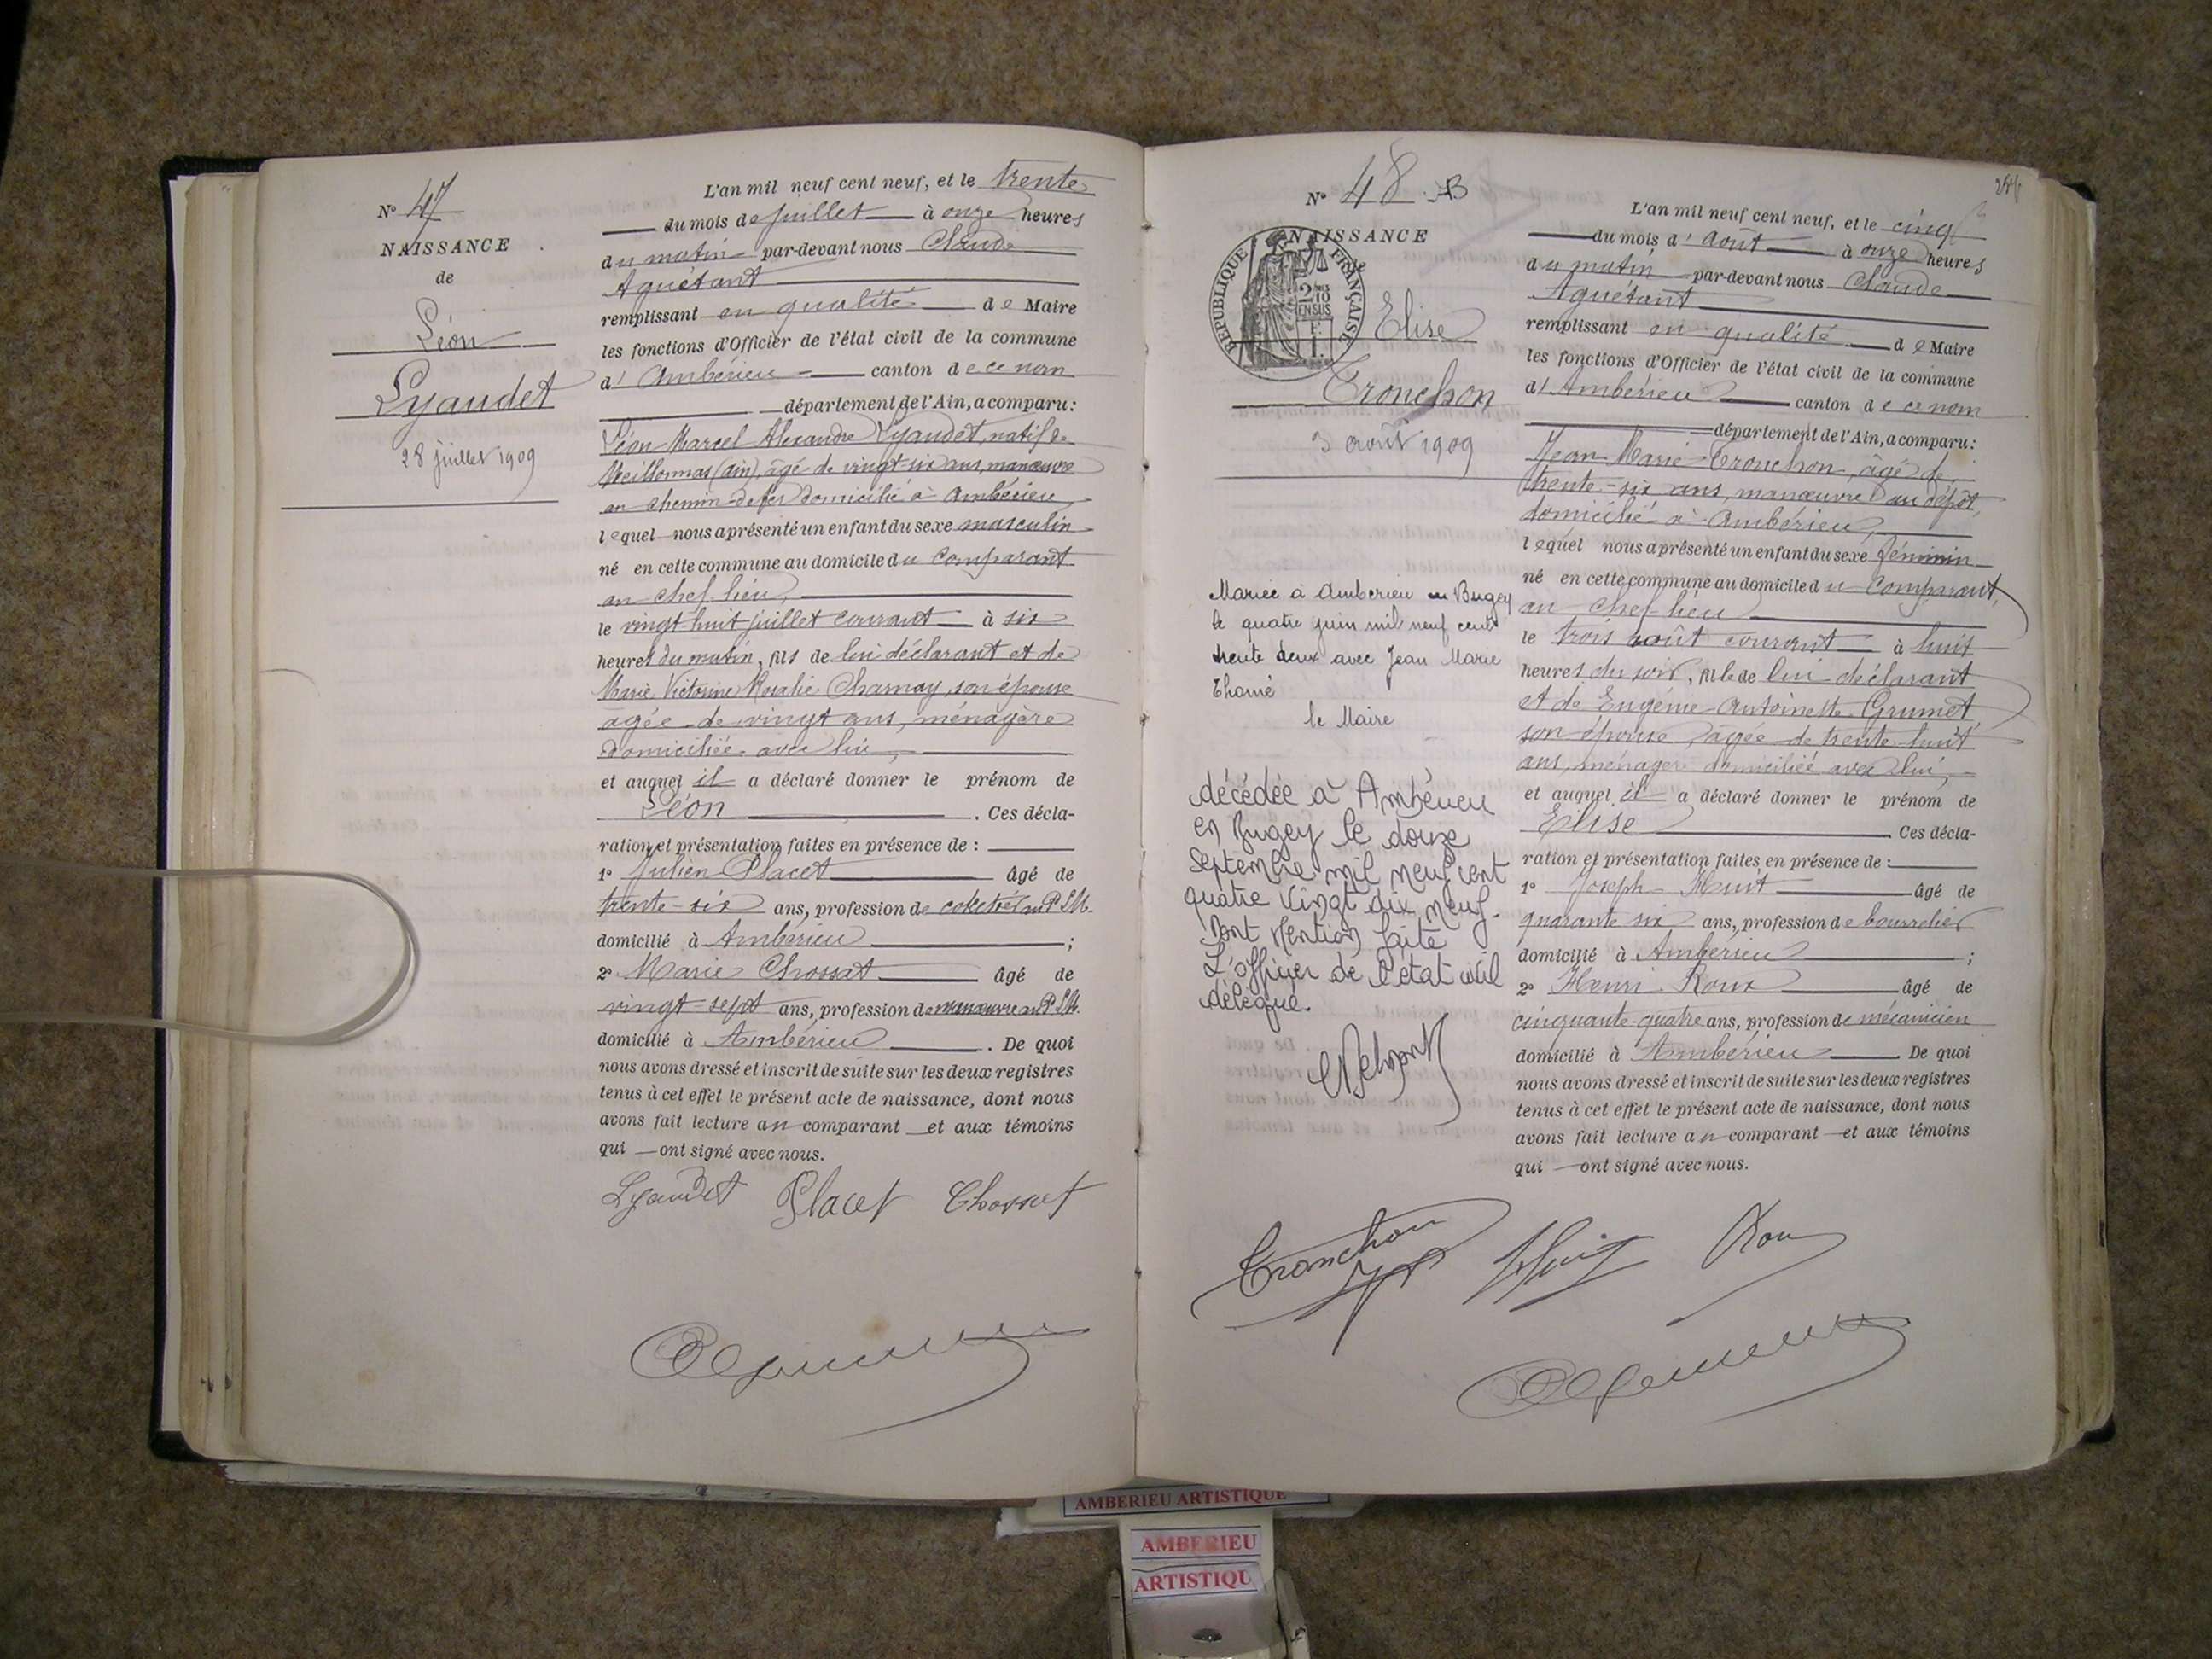 N° 47
NAISSANCE
de
Léon
Lyaudet
28 juillet 1909
L'an mil neuf cent neuf, et le trente
du mois de juillet à onze heures
du matin par-devant nous Claude
Aguétant
remplissant en qualité de Maire
les fonctions d'Officier de l'état civil de la commune
d'Ambérieu canton de ce nom
département de l'Ain, a comparu :
Léon Marcel Alexandre Lyaudet, natif de
Meillonnas (Ain), âgé de vingt-six ans, manœuvre
au chemin de fer domicilié à Ambérieu
lequel nous a présenté un enfant du sexe masculin
né en cette commune au domicile du comparant
au chef-lieu,
le vingt-huit juillet courant à six
heures du matin, fils de lui déclarant et de
Marie Victorine Rosalie Charnay, son épouse
âgée de vingt ans, ménagère
domiciliée avec lui,
et auquel il a déclaré donner le prénom de
Léon . Ces décla-
ration et présentation faites en présence de :
1° Julien Placet âgé de
trente-six ans, profession de au P.L.M.
domicilié à Ambérieu ;
2° Marie Chossat âgé de
vingt-sept ans, profession de manœuvre au P.L.M.
domicilié à Ambérieu . De quoi
nous avons dressé et inscrit de suite sur les deux registres
tenus à cet effet le présent acte de naissance, dont nous
avons fait lecture au comparant et aux témoins
qui ont signé avec nous.
Lyaudet Placet Chossat
N° 48. B
NAISSANCE
de
RÉPUBLIQUE FRANÇAISE
2/10 EN SUS
Elise
Tronchon
3 août 1909
Mariée à Amberieu en Bugey
le quatre juin mil neuf cent
trente deux avec Jean Marie
Thomé
le Maire
décédée à Ambérieu
en Bugey le douze
septembre mil neuf cent
quatre vingt dix neuf.
Dont mention faite
L'officier de l'état civil
délégué.
L'an mil neuf cent neuf, et le cinq
du mois d'août à onze heures
du matin par-devant nous Claude
Aguétant
remplissant en qualité de Maire
les fonctions d'Officier de l'état civil de la commune
d'Ambérieu canton de ce nom
département de l'Ain, a comparu :
Jean Marie Tronchon, âgé de
trente-six ans, manœuvre au dépôt,
domicilié à Ambérieu,
lequel nous a présenté un enfant du sexe féminin
né en cette commune au domicile du comparant,
au chef-lieu
le trois août courant à huit
heures du soir, fille de lui déclarant
et de Eugénie-Antoinette Grumet,
son épouse, âgée de trente-huit
ans, ménagère domiciliée avec lui,
et auquel il a déclaré donner le prénom de
Elise Ces décla-
ration et présentation faites en présence de :
1° Joseph Huit âgé de
quarante six ans, profession de bourrelier
domicilié à Ambérieu ;
2° Henri Roux âgé de
cinquante-quatre ans, profession de mécanicien
domicilié à Ambérieu . De quoi
nous avons dressé et inscrit de suite sur les deux registres
tenus à cet effet le présent acte de naissance, dont nous
avons fait lecture au comparant et aux témoins
qui ont signé avec nous.
Tronchon Huit Roux
AMBERIEU ARTISTIQUE
AMBERIEU
ARTISTIQU